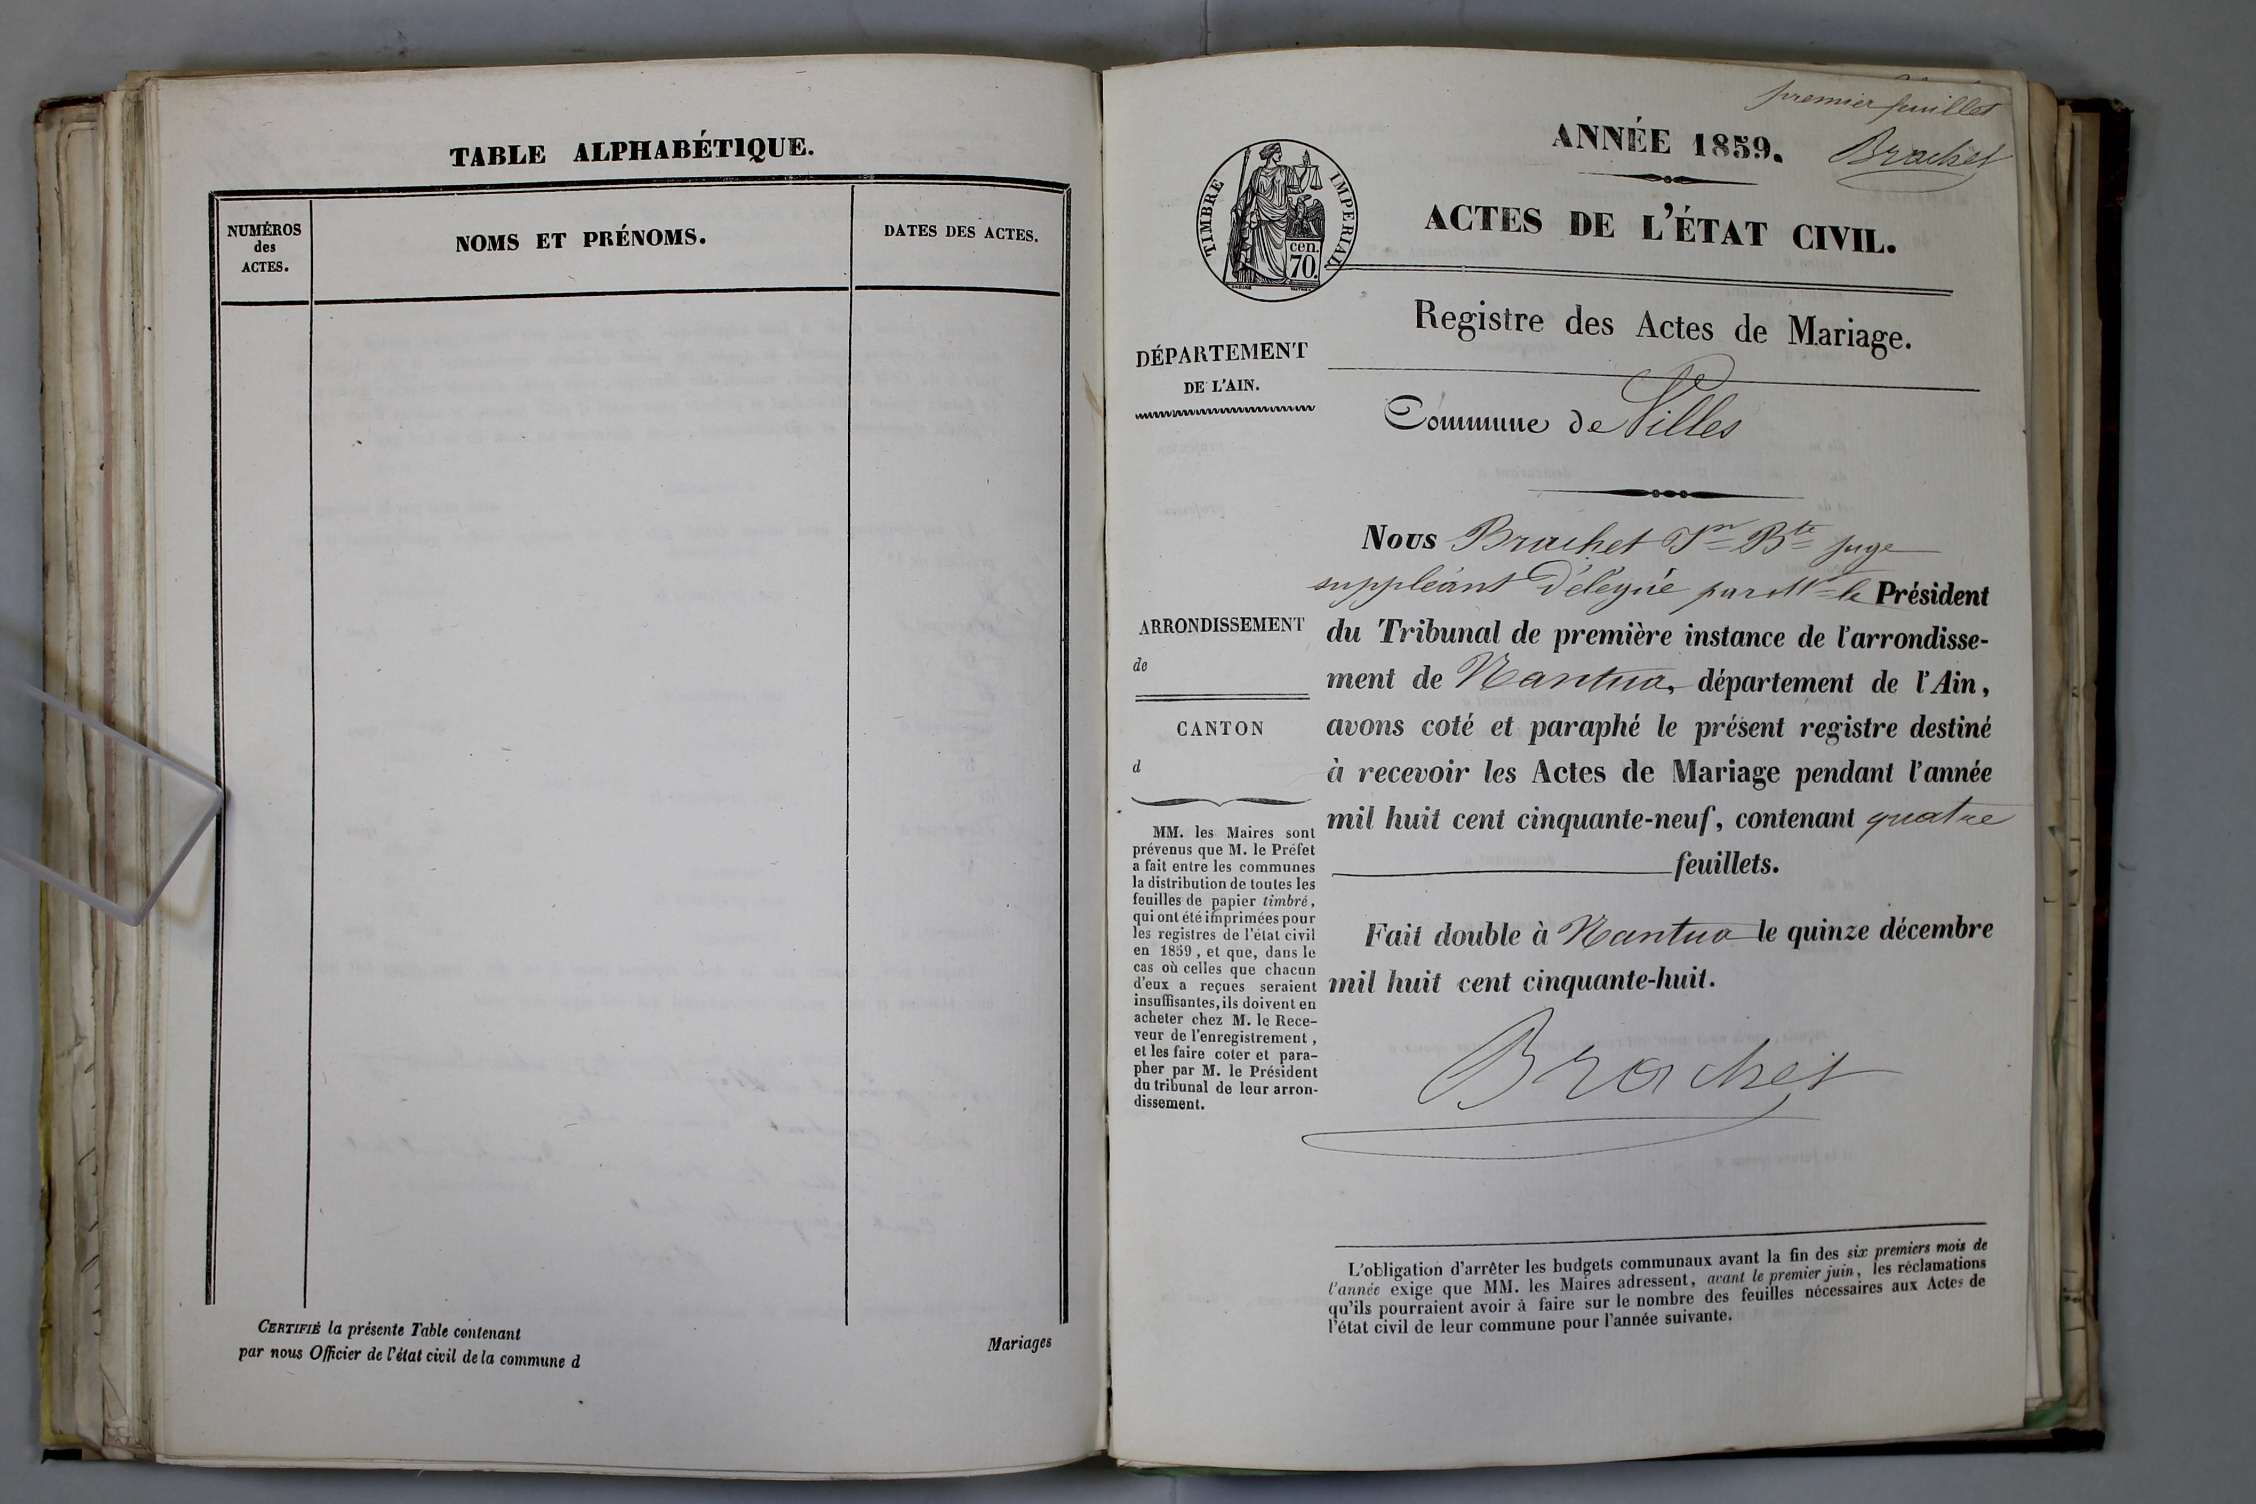 TABLE ALPHABÉTIQUE.
NUMÉROS
des
ACTES.
NOMS ET PRÉNOMS.
DATES DES ACTES.
CERTIFIÉ la présente Table contenant
Mariages
par nous Officier de l'état civil de la commune d
premier feuillet
Brachet
ANNÉE 1859.
TIMBRE IMPERIAL
cen.
70.
ACTES DE L'ÉTAT CIVIL.
Registre des Actes de Mariage.
DÉPARTEMENT
DE L'AIN.
Commune de Villes
Nous Brachet Jn Bte juge
suppléant délégué par Mr le Président
du Tribunal de première instance de l'arrondisse-
ment de Nantua, département de l'Ain,
avons coté et paraphé le présent registre destiné
à recevoir les Actes de Mariage pendant l'année
mil huit cent cinquante-neuf, contenant quatre
feuillets.
Fait double à Nantua le quinze décembre
mil huit cent cinquante-huit.
Brachet
ARRONDISSEMENT
de
CANTON
d
MM. les Maires sont
prévenus que M. le Préfet
a fait entre les communes
la distribution de toutes les
feuilles de papier timbré,
qui ont été imprimées pour
les registres de l'état civil
en 1859, et que, dans le
cas où celles que chacun
d'eux a reçues seraient
insuffisantes, ils doivent en
acheter chez M. le Rece-
veur de l'enregistrement,
et les faire coter et para-
pher par M. le Président
du tribunal de leur arron-
dissement.
L'obligation d'arrêter les budgets communaux avant la fin des six premiers mois de
l'année exige que MM. les Maires adressent, avant le premier juin, les réclamations
qu'ils pourraient avoir à faire sur le nombre des feuilles nécessaires aux Actes de
l'état civil de leur commune pour l'année suivante.